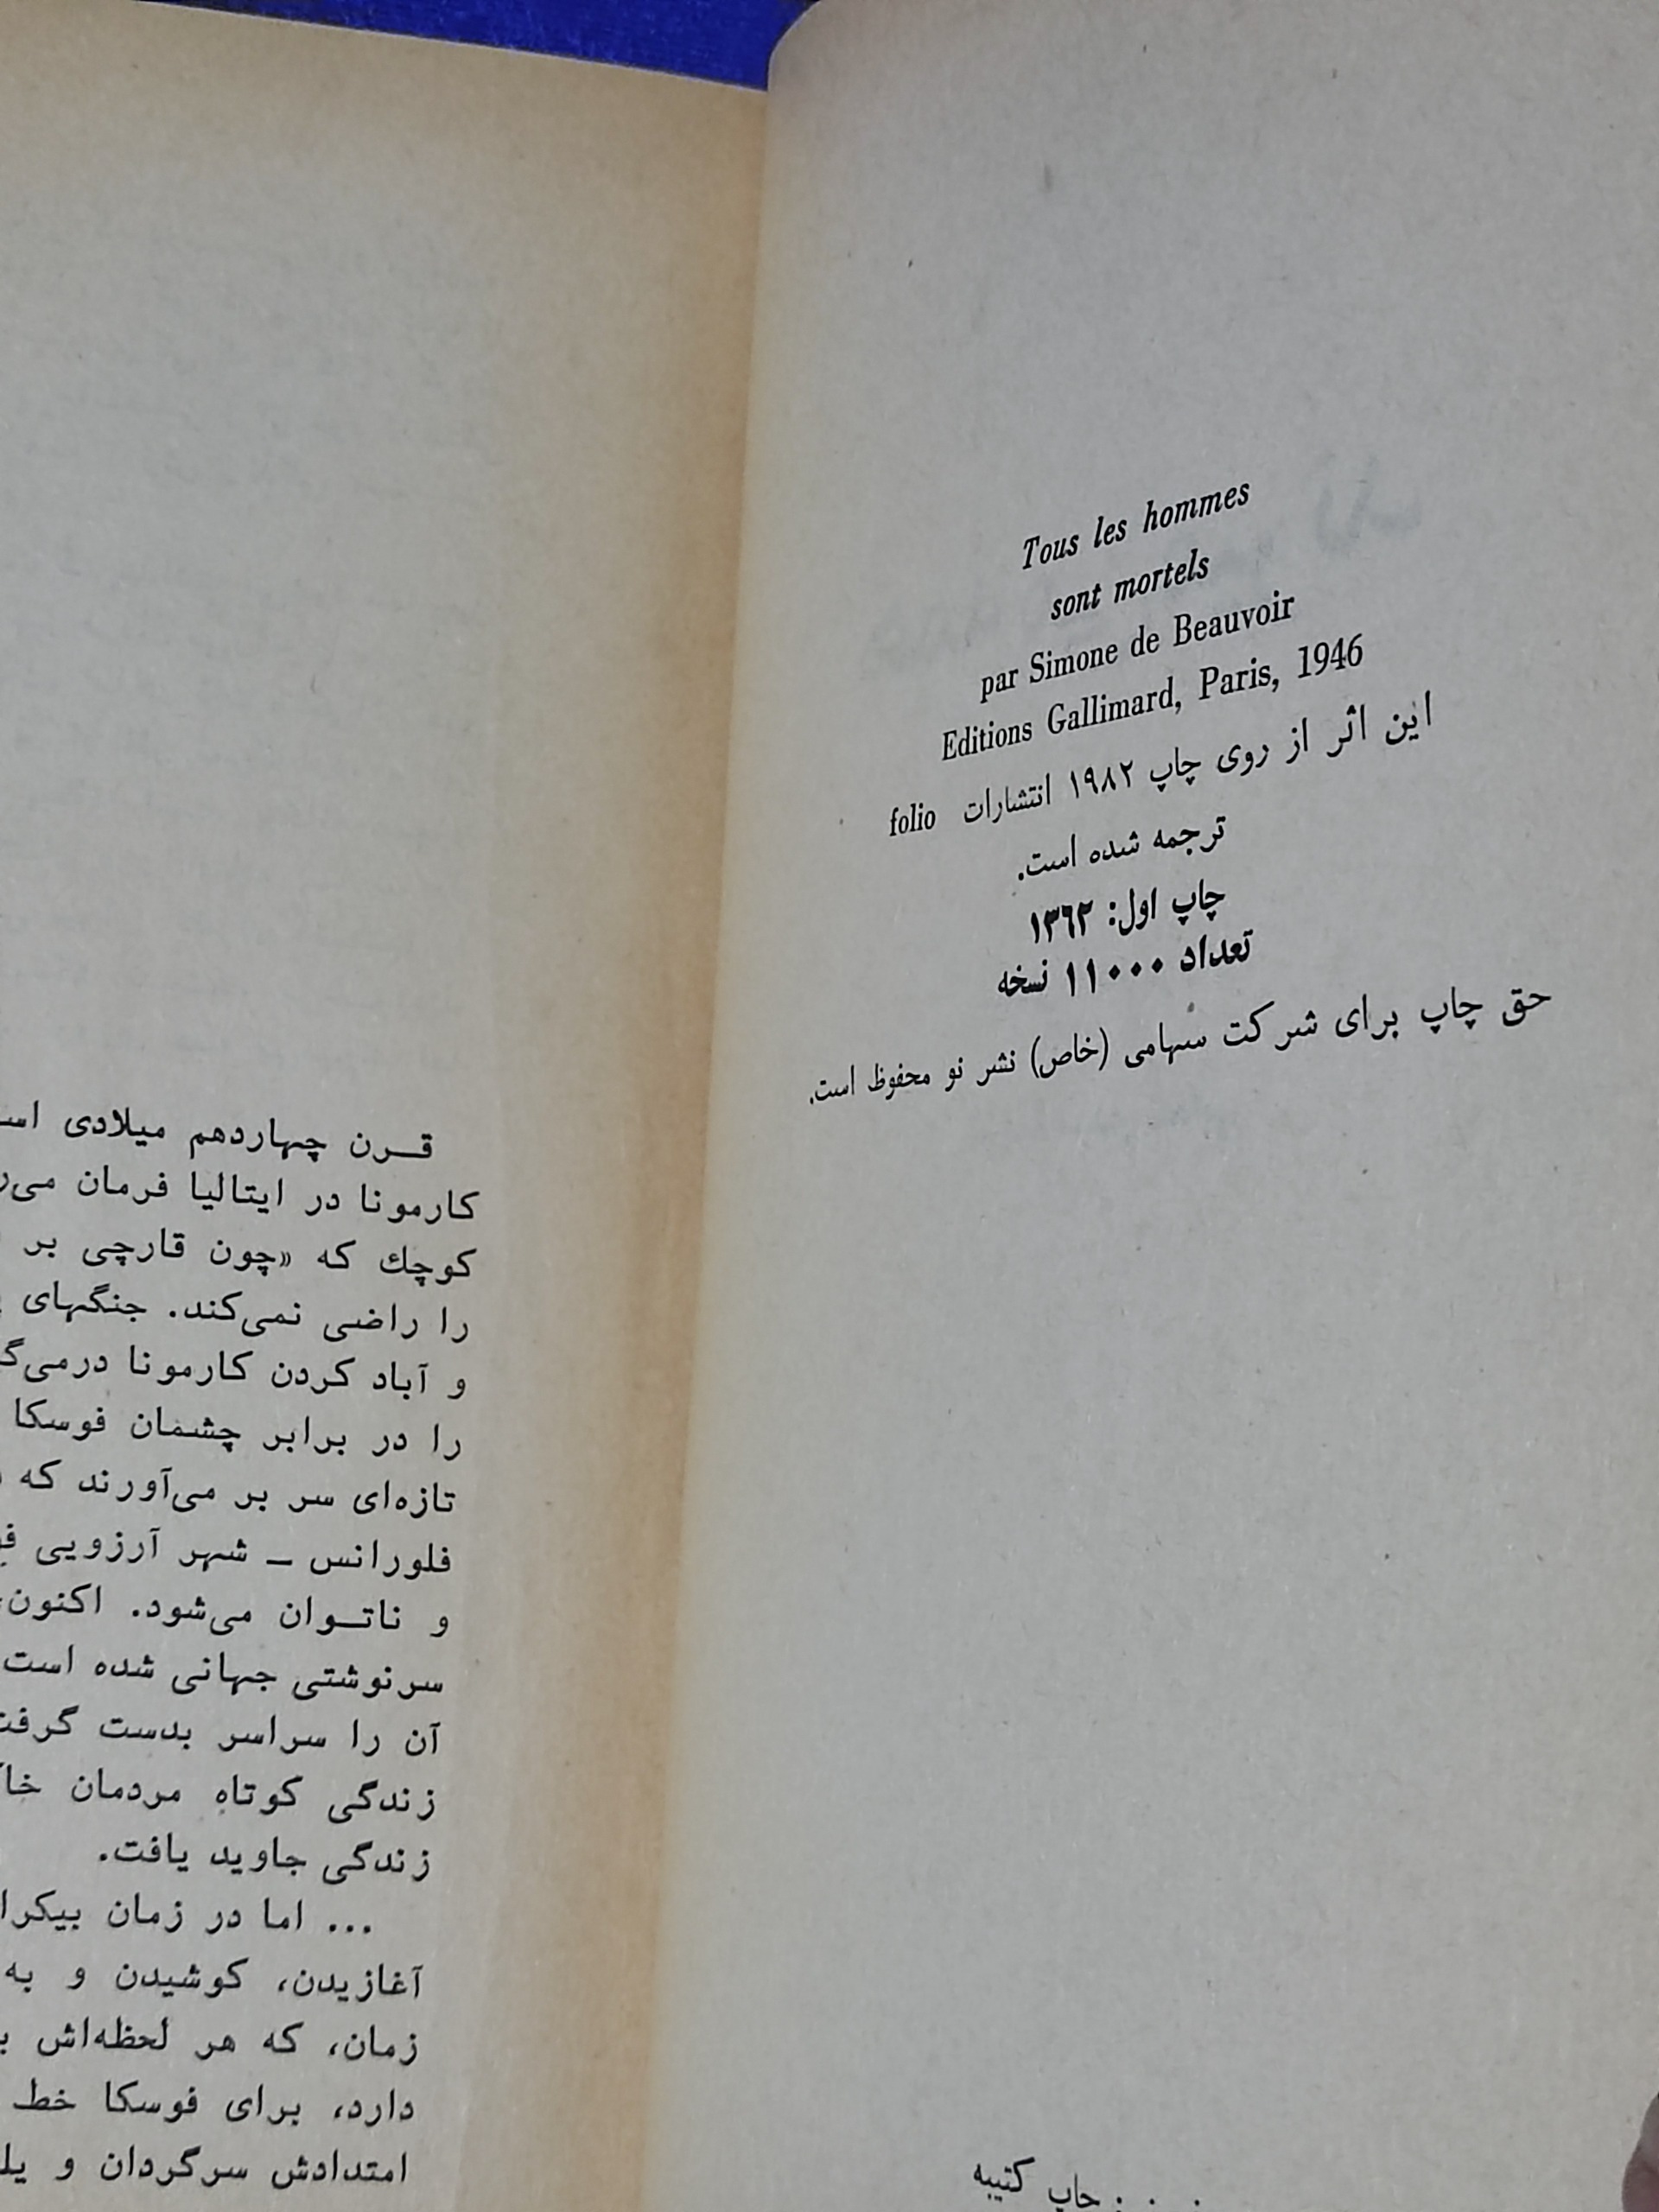 Tous les hommes
sont mortels
par Simone de Beauvoir
Editions Gallimard, Paris, 1946
این اثر از روی چاپ ۱۹۸۲ انتشارات folio
ترجمه شده است.
چاپ اول: ۱۳۶۲
تعداد ۱۱۰۰۰ نسخه
حق چاپ برای شرکت سهامی (خاص) نشر نو محفوظ است.
چاپ کتیبه
قرن چهاردهم میلادی
کارمونا در ایتالیا فرمان
کوچك که «چون قارچی بر
را راضی نمی‌کند. جنگهای
و آباد کردن کارمونا
را در برابر چشمان فوسکا
تازه‌ای سر بر می‌آورند که
فلورانس – شهر آرزویی
و ناتوان می‌شود. اکنون،
سرنوشتی جهانی شده است
آن را سراسر بدست
زندگی کوتاه مردمان
زندگی جاوید یافت.
... اما در زمان
آغازیدن، کوشیدن و به
زمان، که هر لحظه‌اش
دارد، برای فوسکا خط
امتدادش سرگردان و